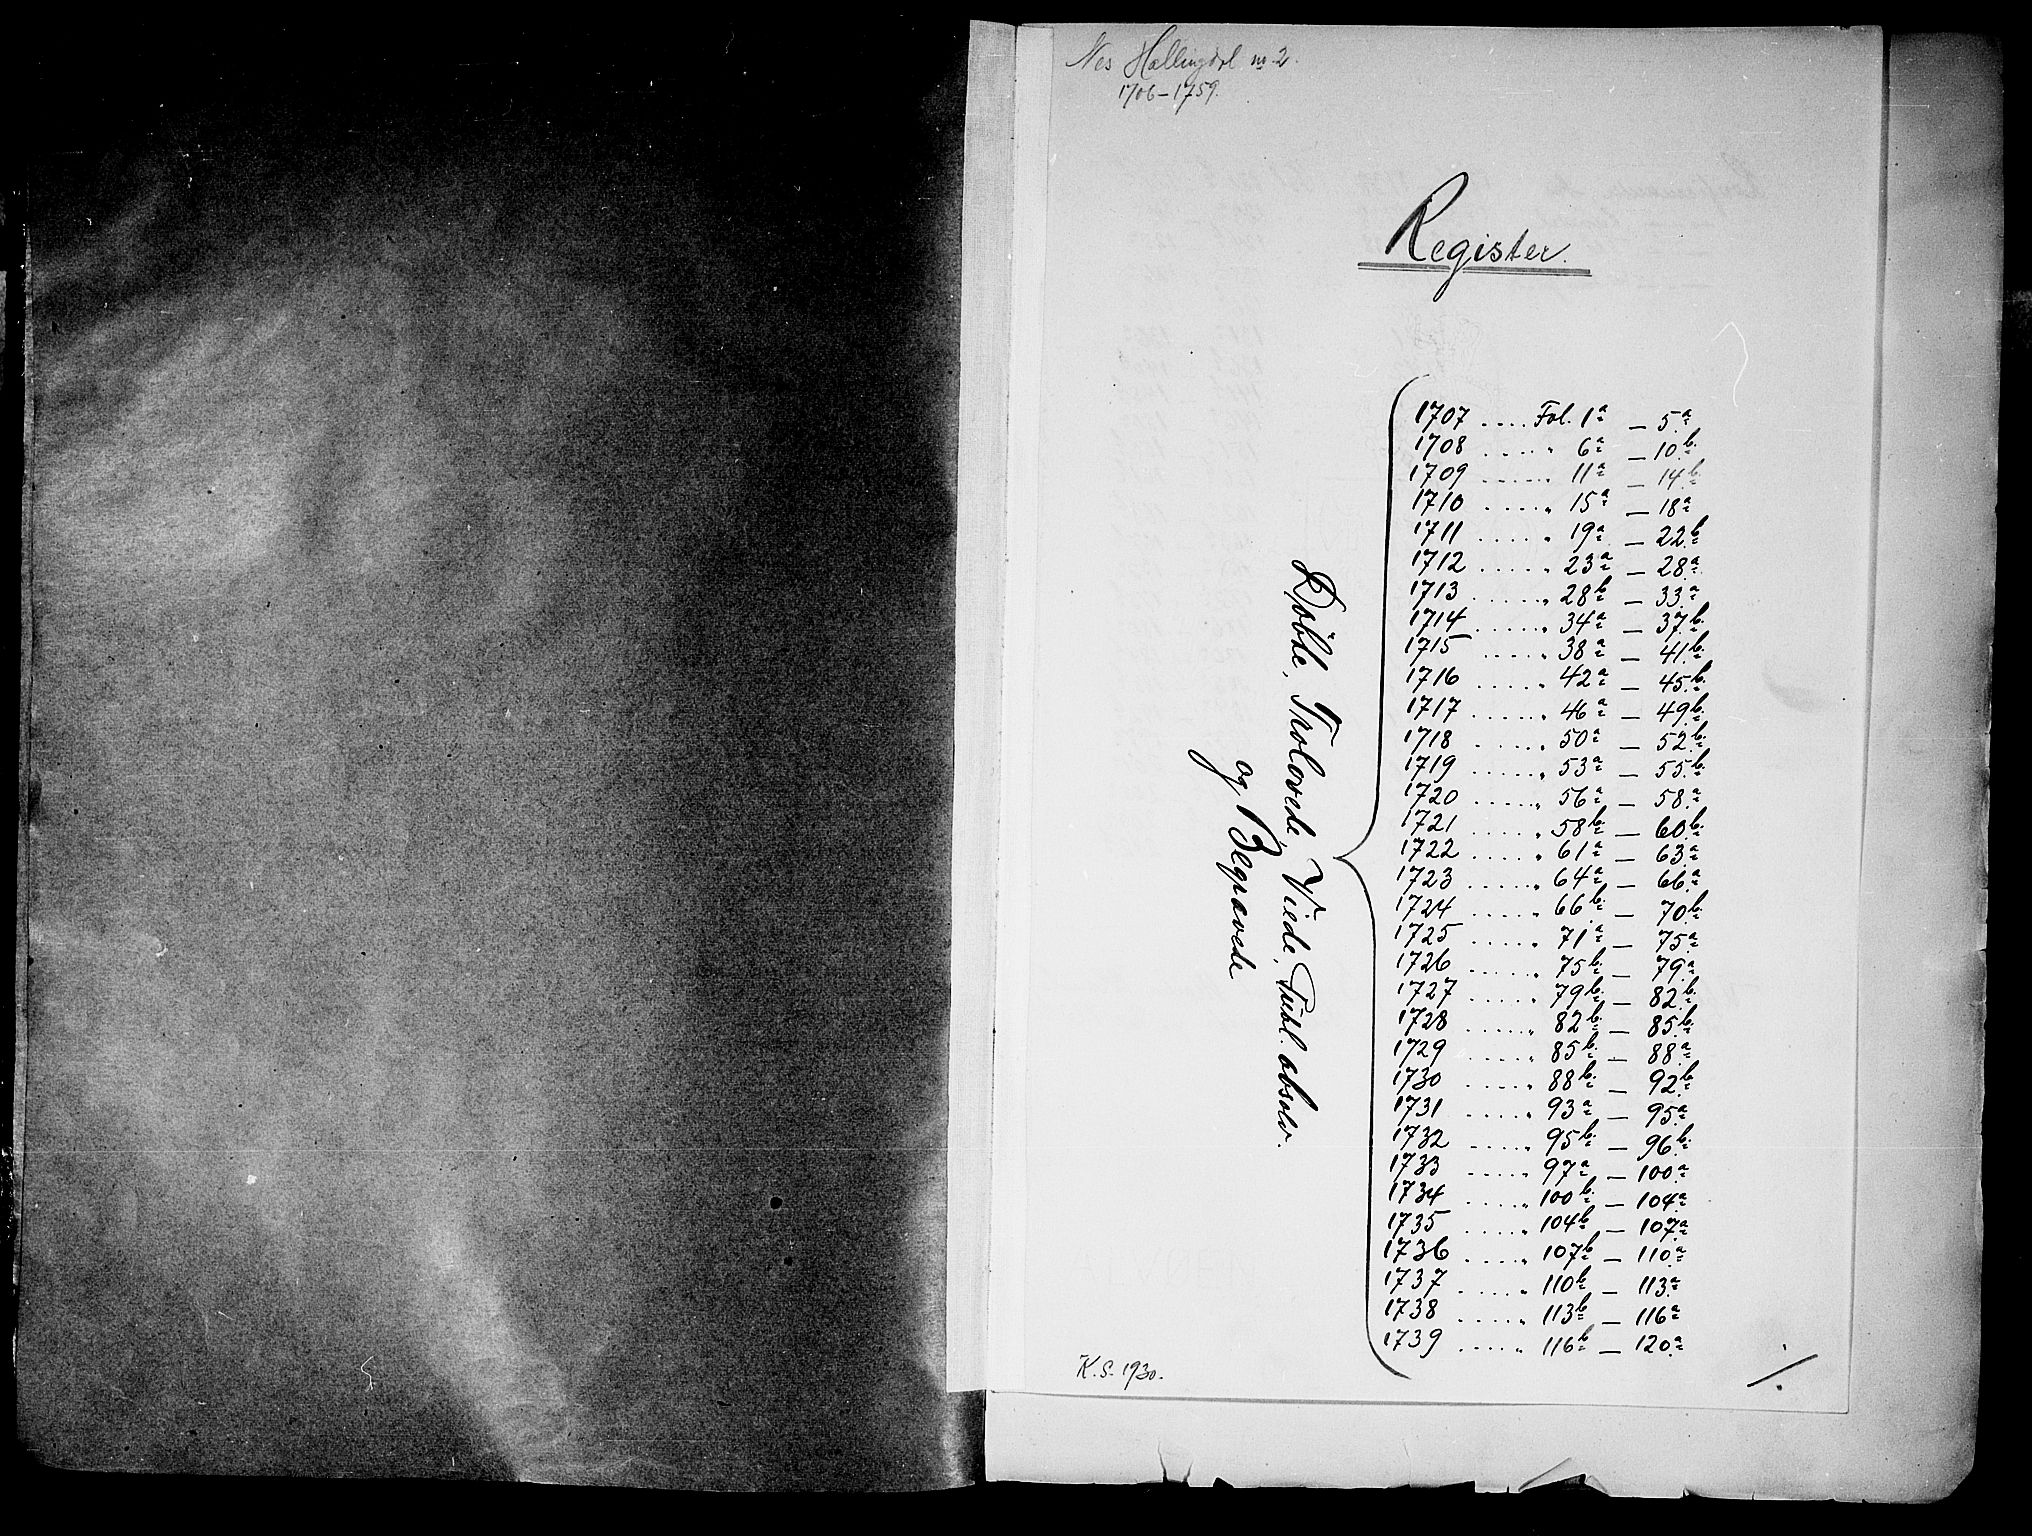 Nes Hallingdal no 2.
1706-1759.
Register.
Døbde, Trolovede, Viede, Publ. absolv.
og Begravede
1707 .... Fol. 1a — 5a
1708 .... " 6a — 10b
1709 ..... " 11a — 14b
1710 ..... " 15a — 18a
1711 ..... " 19a — 22b
1712 ..... " 23a — 28a
1713 ..... " 28b — 33a
1714 ..... " 34a — 37b
1715 ..... " 38a — 41b
1716 ..... " 42a — 45b
1717 ..... " 46a — 49b
1718 ..... " 50a — 52b
1719 ..... " 53a — 55b
1720 ..... " 56a — 58a
1721 ..... " 58b — 60b
1722 ..... " 61a — 63a
1723 ..... " 64a — 66a
1724 ..... " 66b — 70b
1725 ..... " 71a — 75a
1726 ..... " 75b — 79a
1727 ..... " 79b — 82b
1728 ..... " 82b — 85b
1729 ..... " 85b — 88a
1730 ..... " 88b — 92b
1731 ..... " 93a — 95a
1732 ..... " 95b — 96b
1733 ..... " 97a — 100a
1734 ..... " 100b — 104a
1735 ..... " 104b — 107a
1736 ..... " 107b — 110a
1737 ..... " 110b — 113a
1738 ..... " 113b — 116a
1739 ..... " 116b — 120a
K.S. 1930.